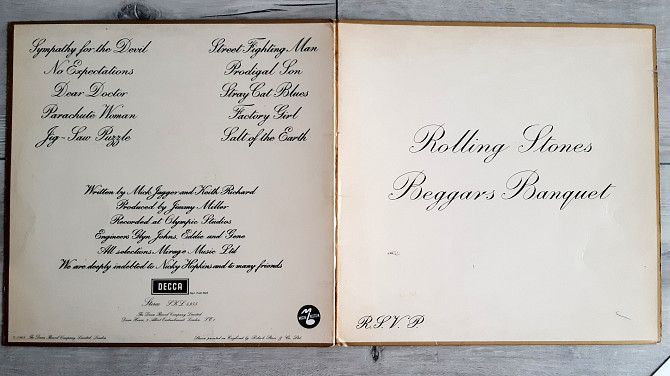 Sympathy for the Devil
No Expectations
Dear Doctor
Parachute Woman
Jig-Saw Puzzle
Street Fighting Man
Prodigal Son
Stray Cat Blues
Factory Girl
Salt of the Earth
Written by Mick Jagger and Keith Richard
Produced by Jimmy Miller
Recorded at Olympic Studios
Engineers Glyn Johns, Eddie and Gene
All selections Mirage Music Ltd
We are deeply indebted to Nicky Hopkins and to many friends
DECCA
Stereo
The Decca Record Company Limited
Decca House, 9 Albert Embankment London S.E.1
The Decca Record Company Limited, London
Sleeve printed in England by Robert Stace & Co. Ltd.
Rolling Stones
Beggars Banquet
R.S.V.P